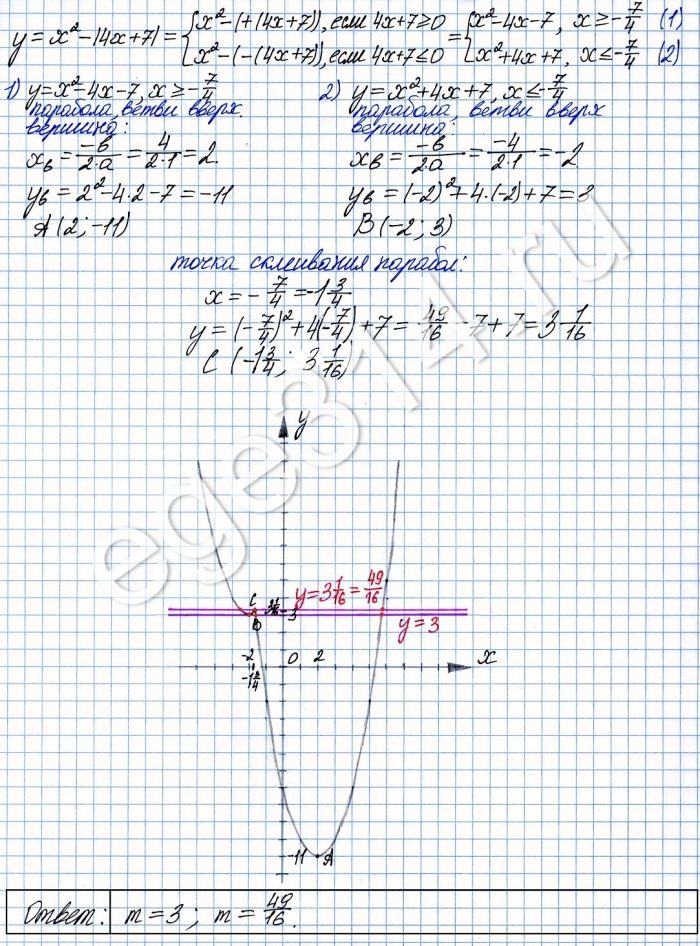 y = x² - |4x+7| = { x² - (+(4x+7)), если 4x+7 ≥ 0 = { x² - 4x - 7, x ≥ -7/4 (1)
x² - (-(4x+7)), если 4x+7 ≤ 0 { x² + 4x + 7, x ≤ -7/4 (2)
1) y = x² - 4x - 7, x ≥ -7/4
парабола, ветви вверх.
вершина:
xв = -в/2·a = 4/2·1 = 2.
yв = 2² - 4·2 - 7 = -11
A (2; -11)
2) y = x² + 4x + 7, x ≤ -7/4
парабола, ветви вверх
вершина:
xв = -в/2·a = -4/2·1 = -2
yв = (-2)² + 4·(-2) + 7 = 3
B (-2; 3)
точка склеивания парабол:
x = -7/4 = -1 3/4
y = (-7/4)² + 4(-7/4) + 7 = 49/16 - 7 + 7 = 3 1/16
C (-1 3/4; 3 1/16)
ege314.ru
y
y = 3 1/16 = 49/16
C
3
B
y = 3
-2
0
2
x
-1 3/4
-11
A
Ответ: m = 3; m = 49/16.